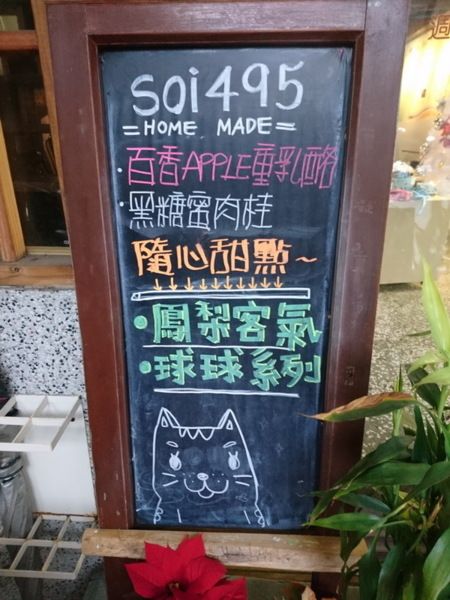 soi495
=HOME MADE=
·百香APPLE重乳酪
·黑糖蜜肉桂
隨心甜點~
↓↓↓↓↓↓↓↓↓↓
·鳳梨客氣
·球球系列
週